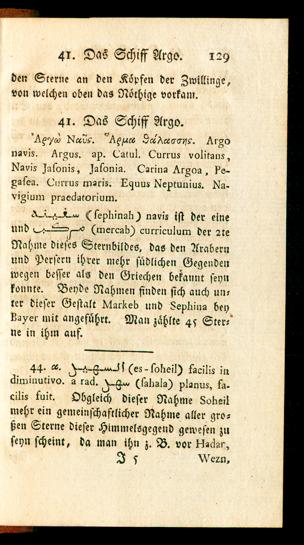 41. Das Schiff Argo. 129
den Sterne an den Köpfen der Zwillinge,
von welchen oben das Nöthige vorkam.
41. Das Schiff Argo.
Ἀργὼ Ναῦς. Ἅρμα θάλασσης. Argo
navis. Argus. ap. Catul. Currus volitans,
Navis Jasonis, Jasonia. Carina Argoa, Pe-
gasea. Currus maris. Equus Neptunius. Na-
vigium praedatorium.
سفينة (sephinah) navis ist der eine
und مركب (mercab) curriculum der 2te
Nahme dieses Sternbildes, das den Arabern
und Persern ihrer mehr südlichen Gegenden
wegen besser als den Griechen bekannt seyn
konnte. Beyde Nahmen finden sich auch un-
ter dieser Gestalt Markeb und Sephina bey
Bayer mit angeführt. Man zählte 45 Ster-
ne in ihm auf.
44. α. السهيل (es-soheil) facilis in
diminutivo. a rad. سهل (sahala) planus, fa-
cilis fuit. Obgleich dieser Nahme Soheil
mehr ein gemeinschaftlicher Nahme aller gro-
ßen Sterne dieser Himmelsgegend gewesen zu
seyn scheint, da man ihn z. B. vor Hadar,
J 5 Wezn,